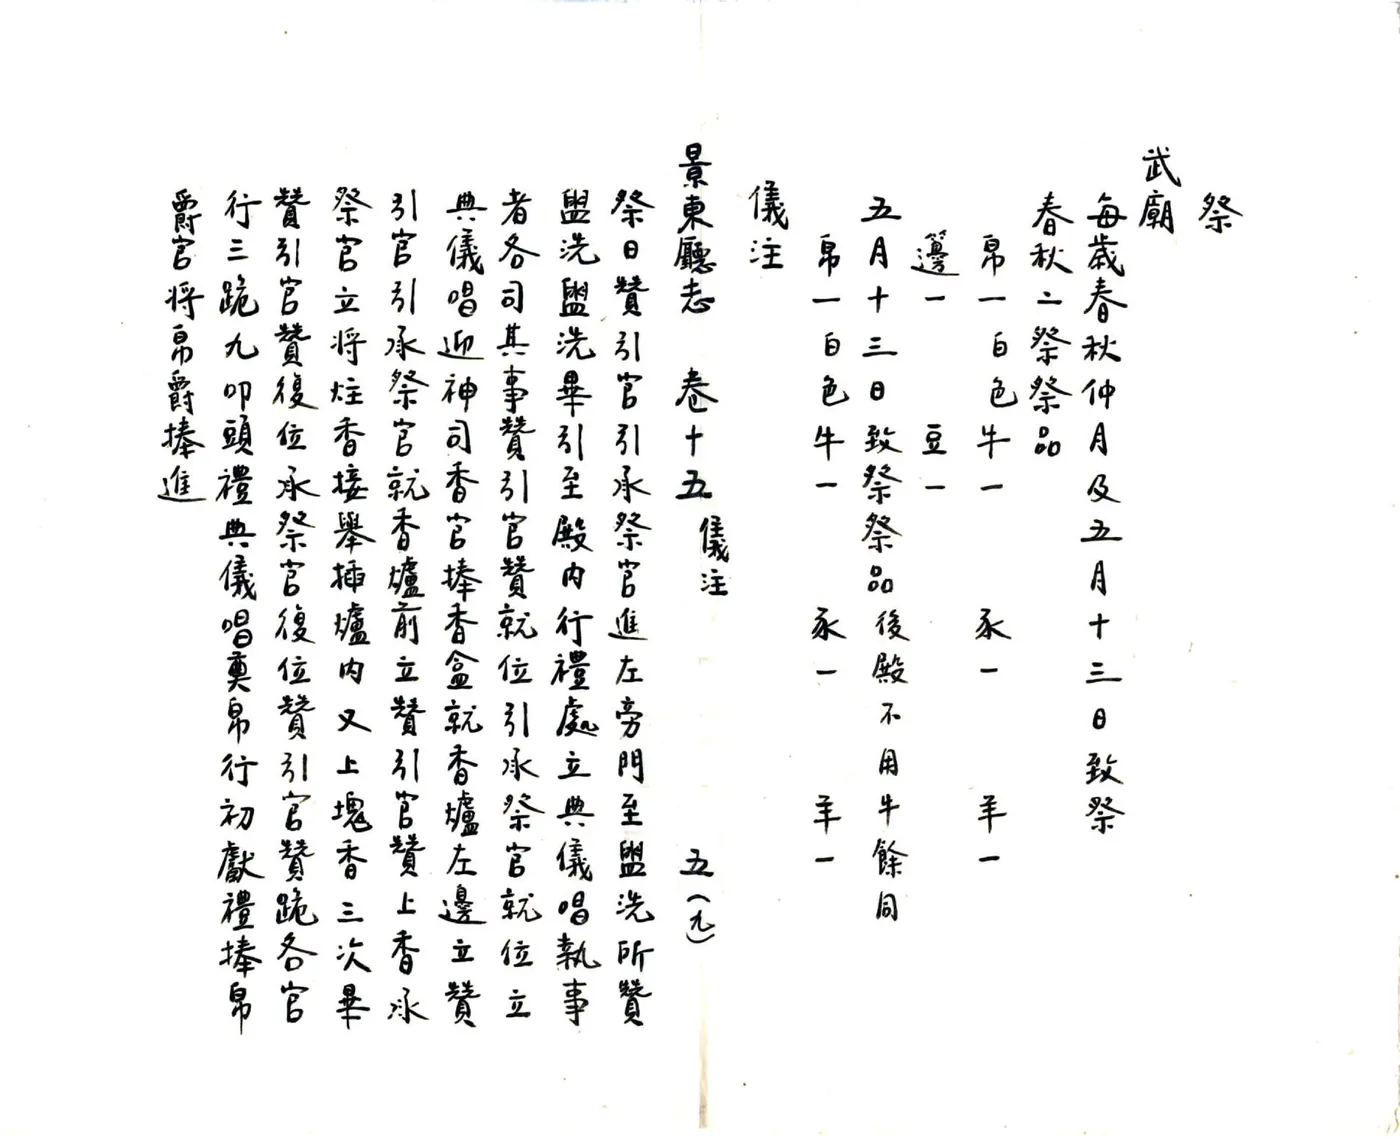 祭
武廟
每歲春秋仲月及五月十三日致祭
春秋二祭祭品
帛一白色牛一 豕一 羊一
籩一 豆一
五月十三日致祭祭品後殿不用牛餘同
帛一白色牛一 豕一 羊一
儀注
景東廳志 卷十五 儀注 五(九)
祭日贊引官引承祭官進左旁門至盥洗所贊
盥洗盥洗畢引至殿內行禮處立典儀唱執事
者各司其事贊引官贊就位引承祭官就位立
典儀唱迎神司香官捧香盒就香爐左邊立贊
引官引承祭官就香爐前立贊引官贊上香承
祭官立將炷香接舉插爐內又上塊香三次畢
贊引官贊復位承祭官復位贊引官贊跪各官
行三跪九叩頭禮典儀唱奠帛行初獻禮捧帛
爵官将帛爵捧進